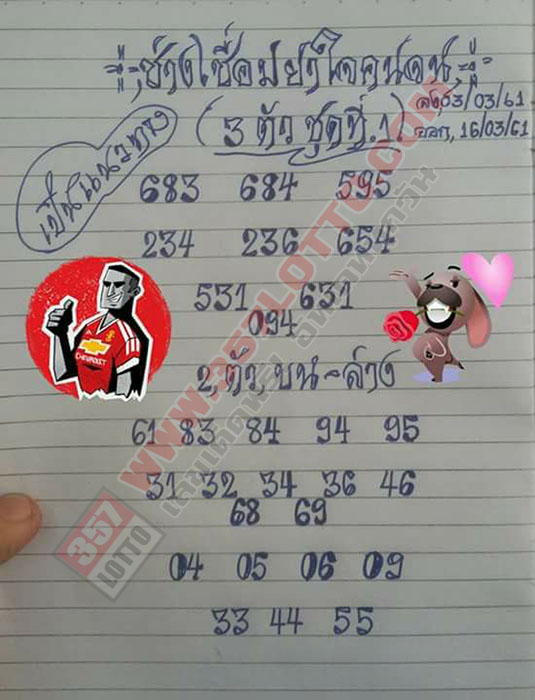 ช่างเชื่อมยาใจคนจน
(3 ตัว ชุดที่.1)
03/03/61
ออก, 16/03/61
เป็นแนวทาง
683 684 595
234 236 654
531 631
094
CHEVROLET
2,ตัว,บน-ล่าง
61 83 84 94 95
31 32 34 36 46
68 69
04 05 06 09
33 44 55
WWW.357LOTTO.COM
357
LOTTO